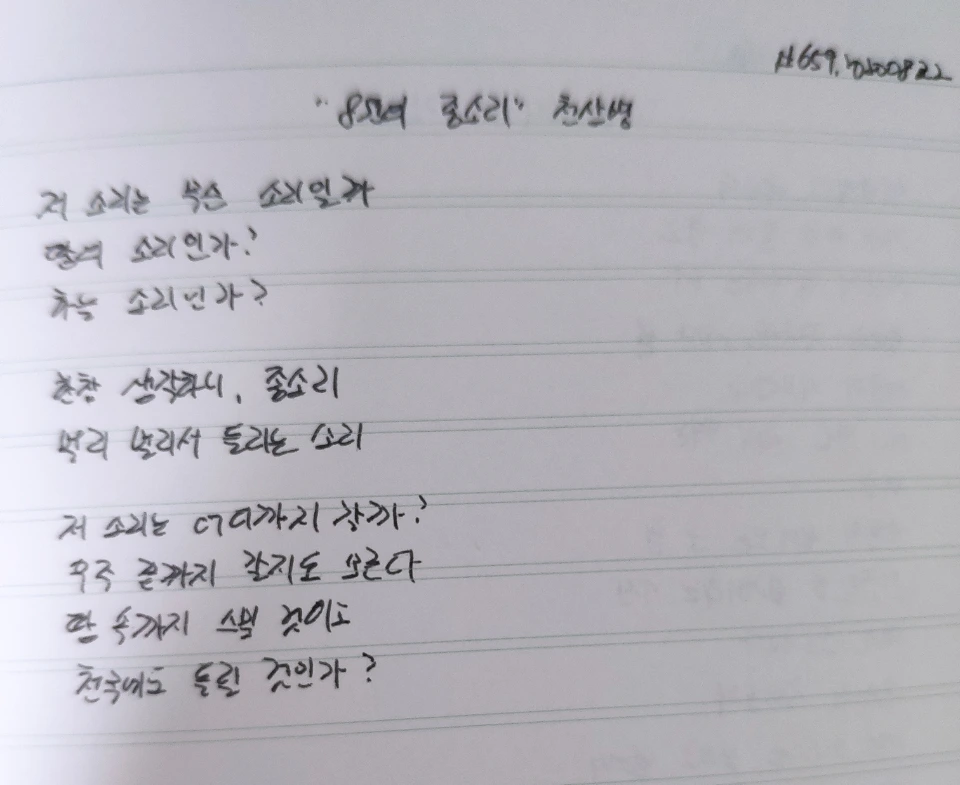 #659. 20200822
"8월의 종소리" 천상병
저 소리는 무슨 소리일까
땅의 소리인가?
하늘 소리인가?
한참 생각하니, 종소리
멀리 멀리서 들리는 소리
저 소리는 어디까지 갈까?
우주 끝까지 갈지도 모른다
땅 속까지 스밀 것이고
천국에도 들릴 것인가?